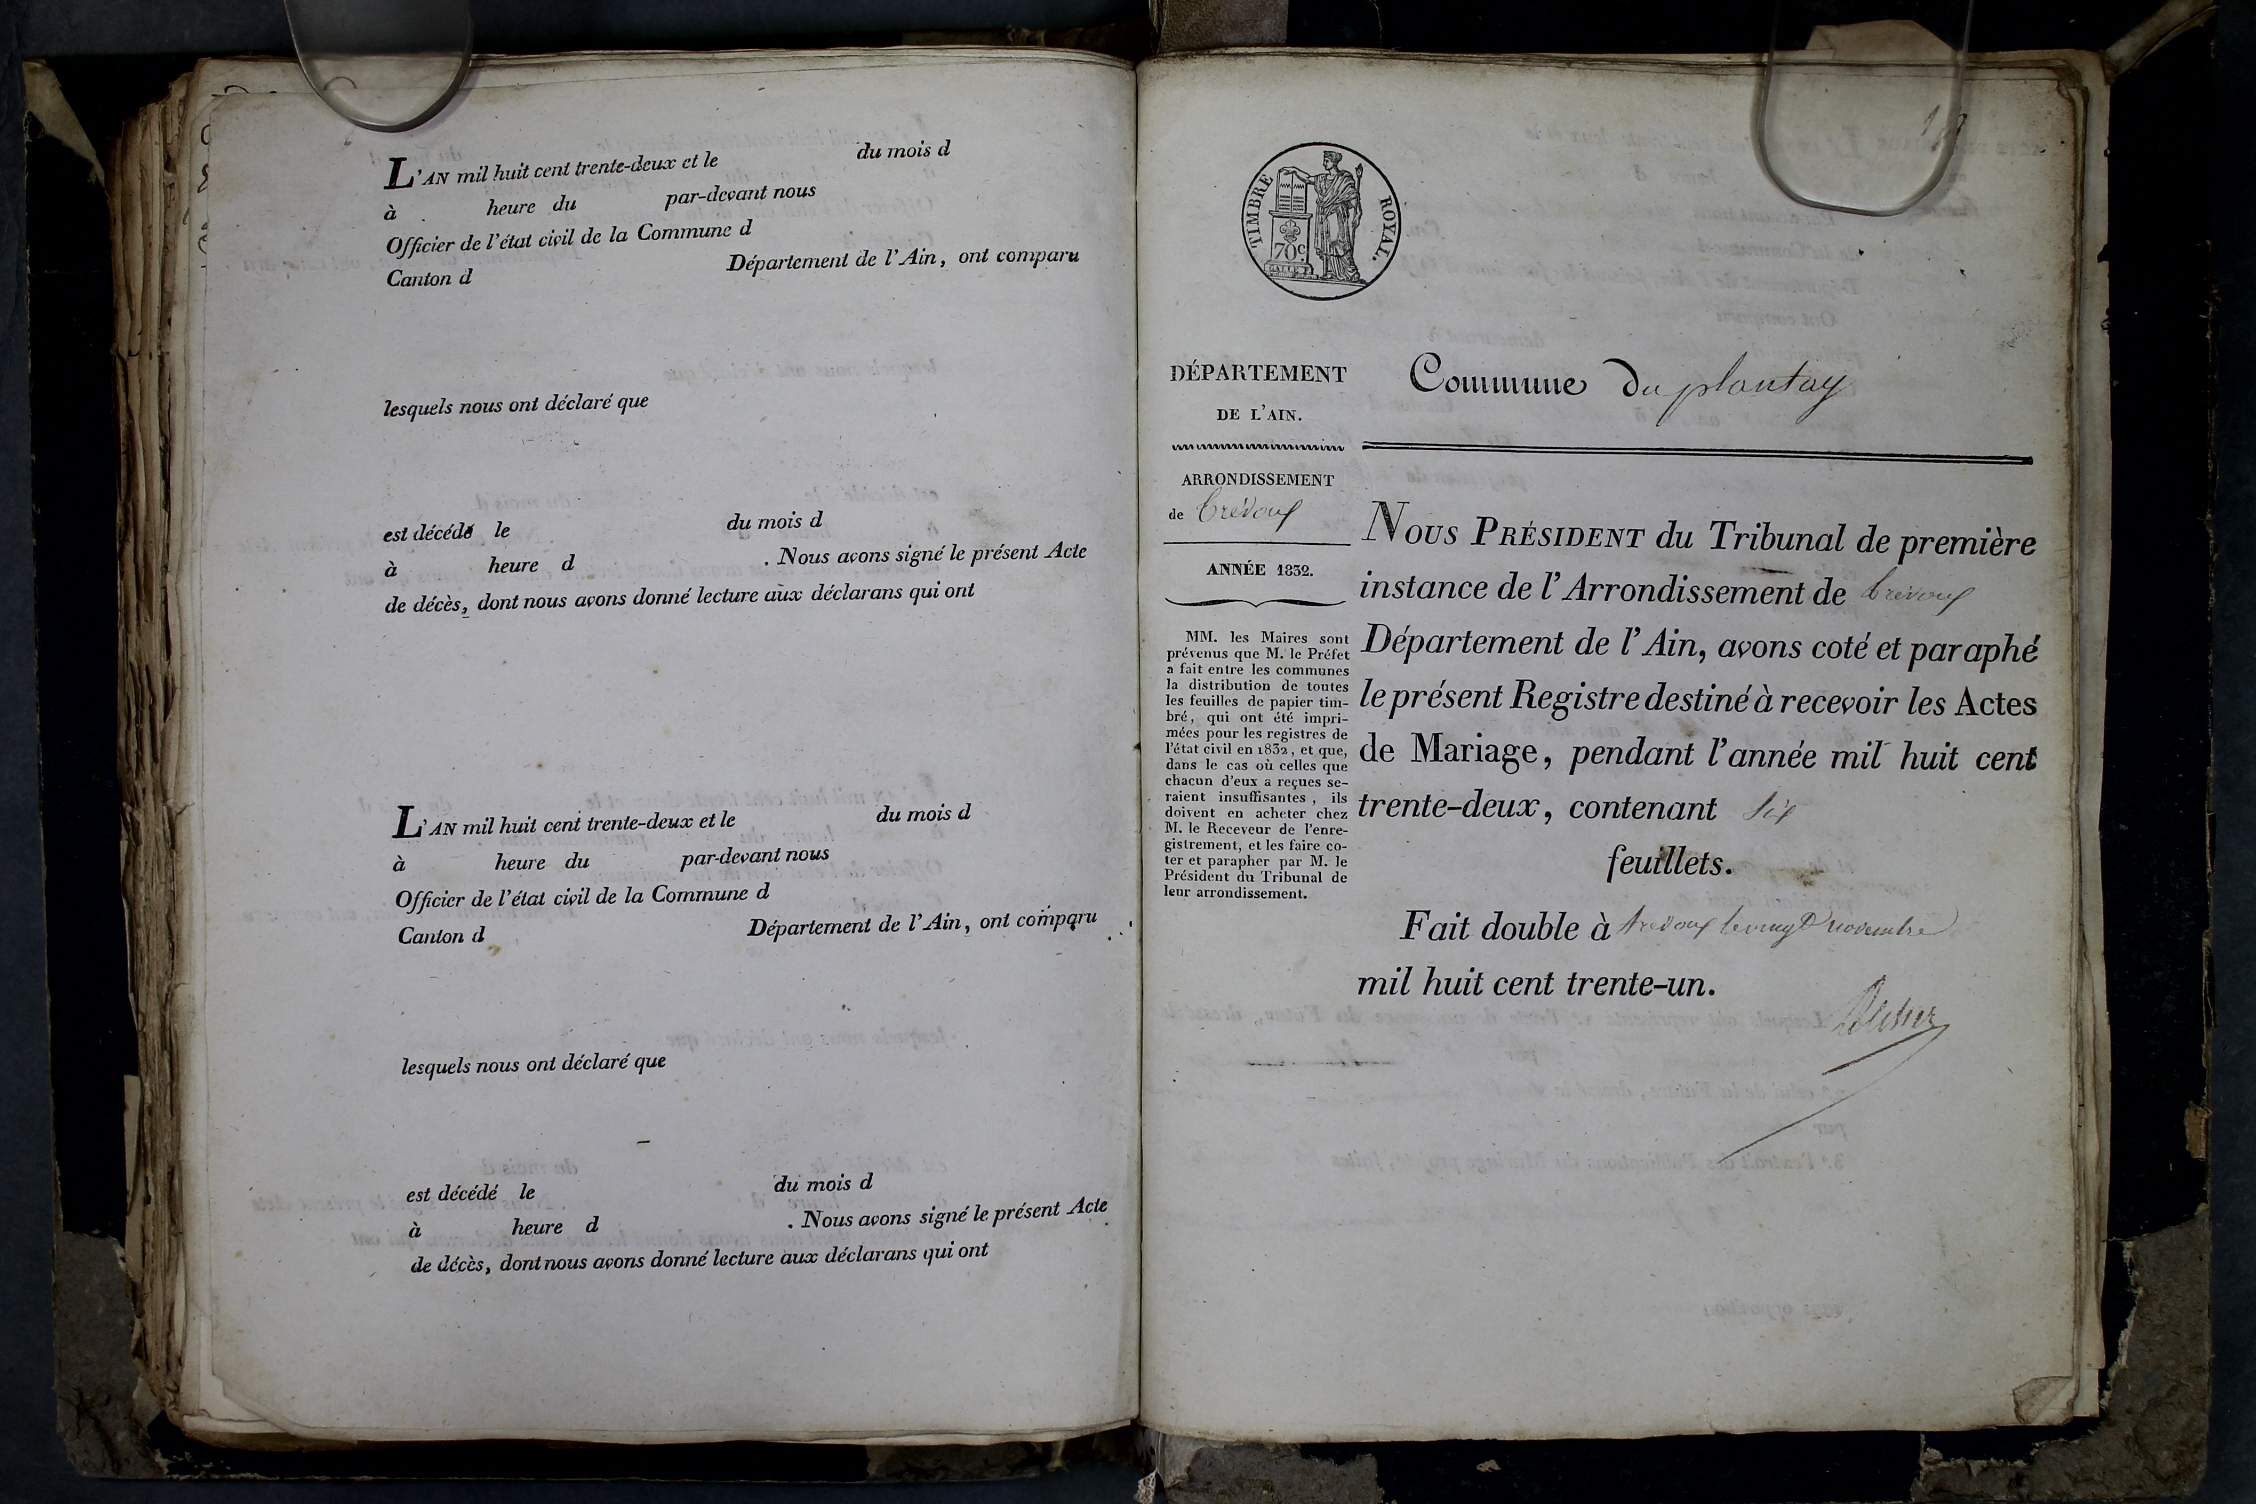 L'AN mil huit cent trente-deux et le du mois d
à heure du par-devant nous
Officier de l'état civil de la Commune d
Canton d Département de l'Ain, ont comparu
lesquels nous ont déclaré que
est décédé le du mois d
à heure d . Nous avons signé le présent Acte
de décès, dont nous avons donné lecture aux déclarans qui ont
L'AN mil huit cent trente-deux et le du mois d
à heure du par-devant nous
Officier de l'état civil de la Commune d
Canton d Département de l'Ain, ont comparu
lesquels nous ont déclaré que
est décédé le du mois d
à heure d . Nous avons signé le présent Acte
de décès, dont nous avons donné lecture aux déclarans qui ont
TIMBRE ROYAL.
70c
DÉPARTEMENT
DE L'AIN.
ARRONDISSEMENT
de trévoux
ANNÉE 1832.
MM. les Maires sont
prévenus que M. le Préfet
a fait entre les communes
la distribution de toutes
les feuilles de papier tim-
bré, qui ont été impri-
mées pour les registres de
l'état civil en 1832, et que,
dans le cas où celles que
chacun d'eux a reçues se-
raient insuffisantes, ils
doivent en acheter chez
M. le Receveur de l'enre-
gistrement, et les faire co-
ter et parapher par M. le
Président du Tribunal de
leur arrondissement.
Commune Du plantay
NOUS PRÉSIDENT du Tribunal de première
instance de l'Arrondissement de trévoux
Département de l'Ain, avons coté et paraphé
le présent Registre destiné à recevoir les Actes
de Mariage, pendant l'année mil huit cent
trente-deux, contenant six
feuillets.
Fait double à trévoux le vingt novembre
mil huit cent trente-un.